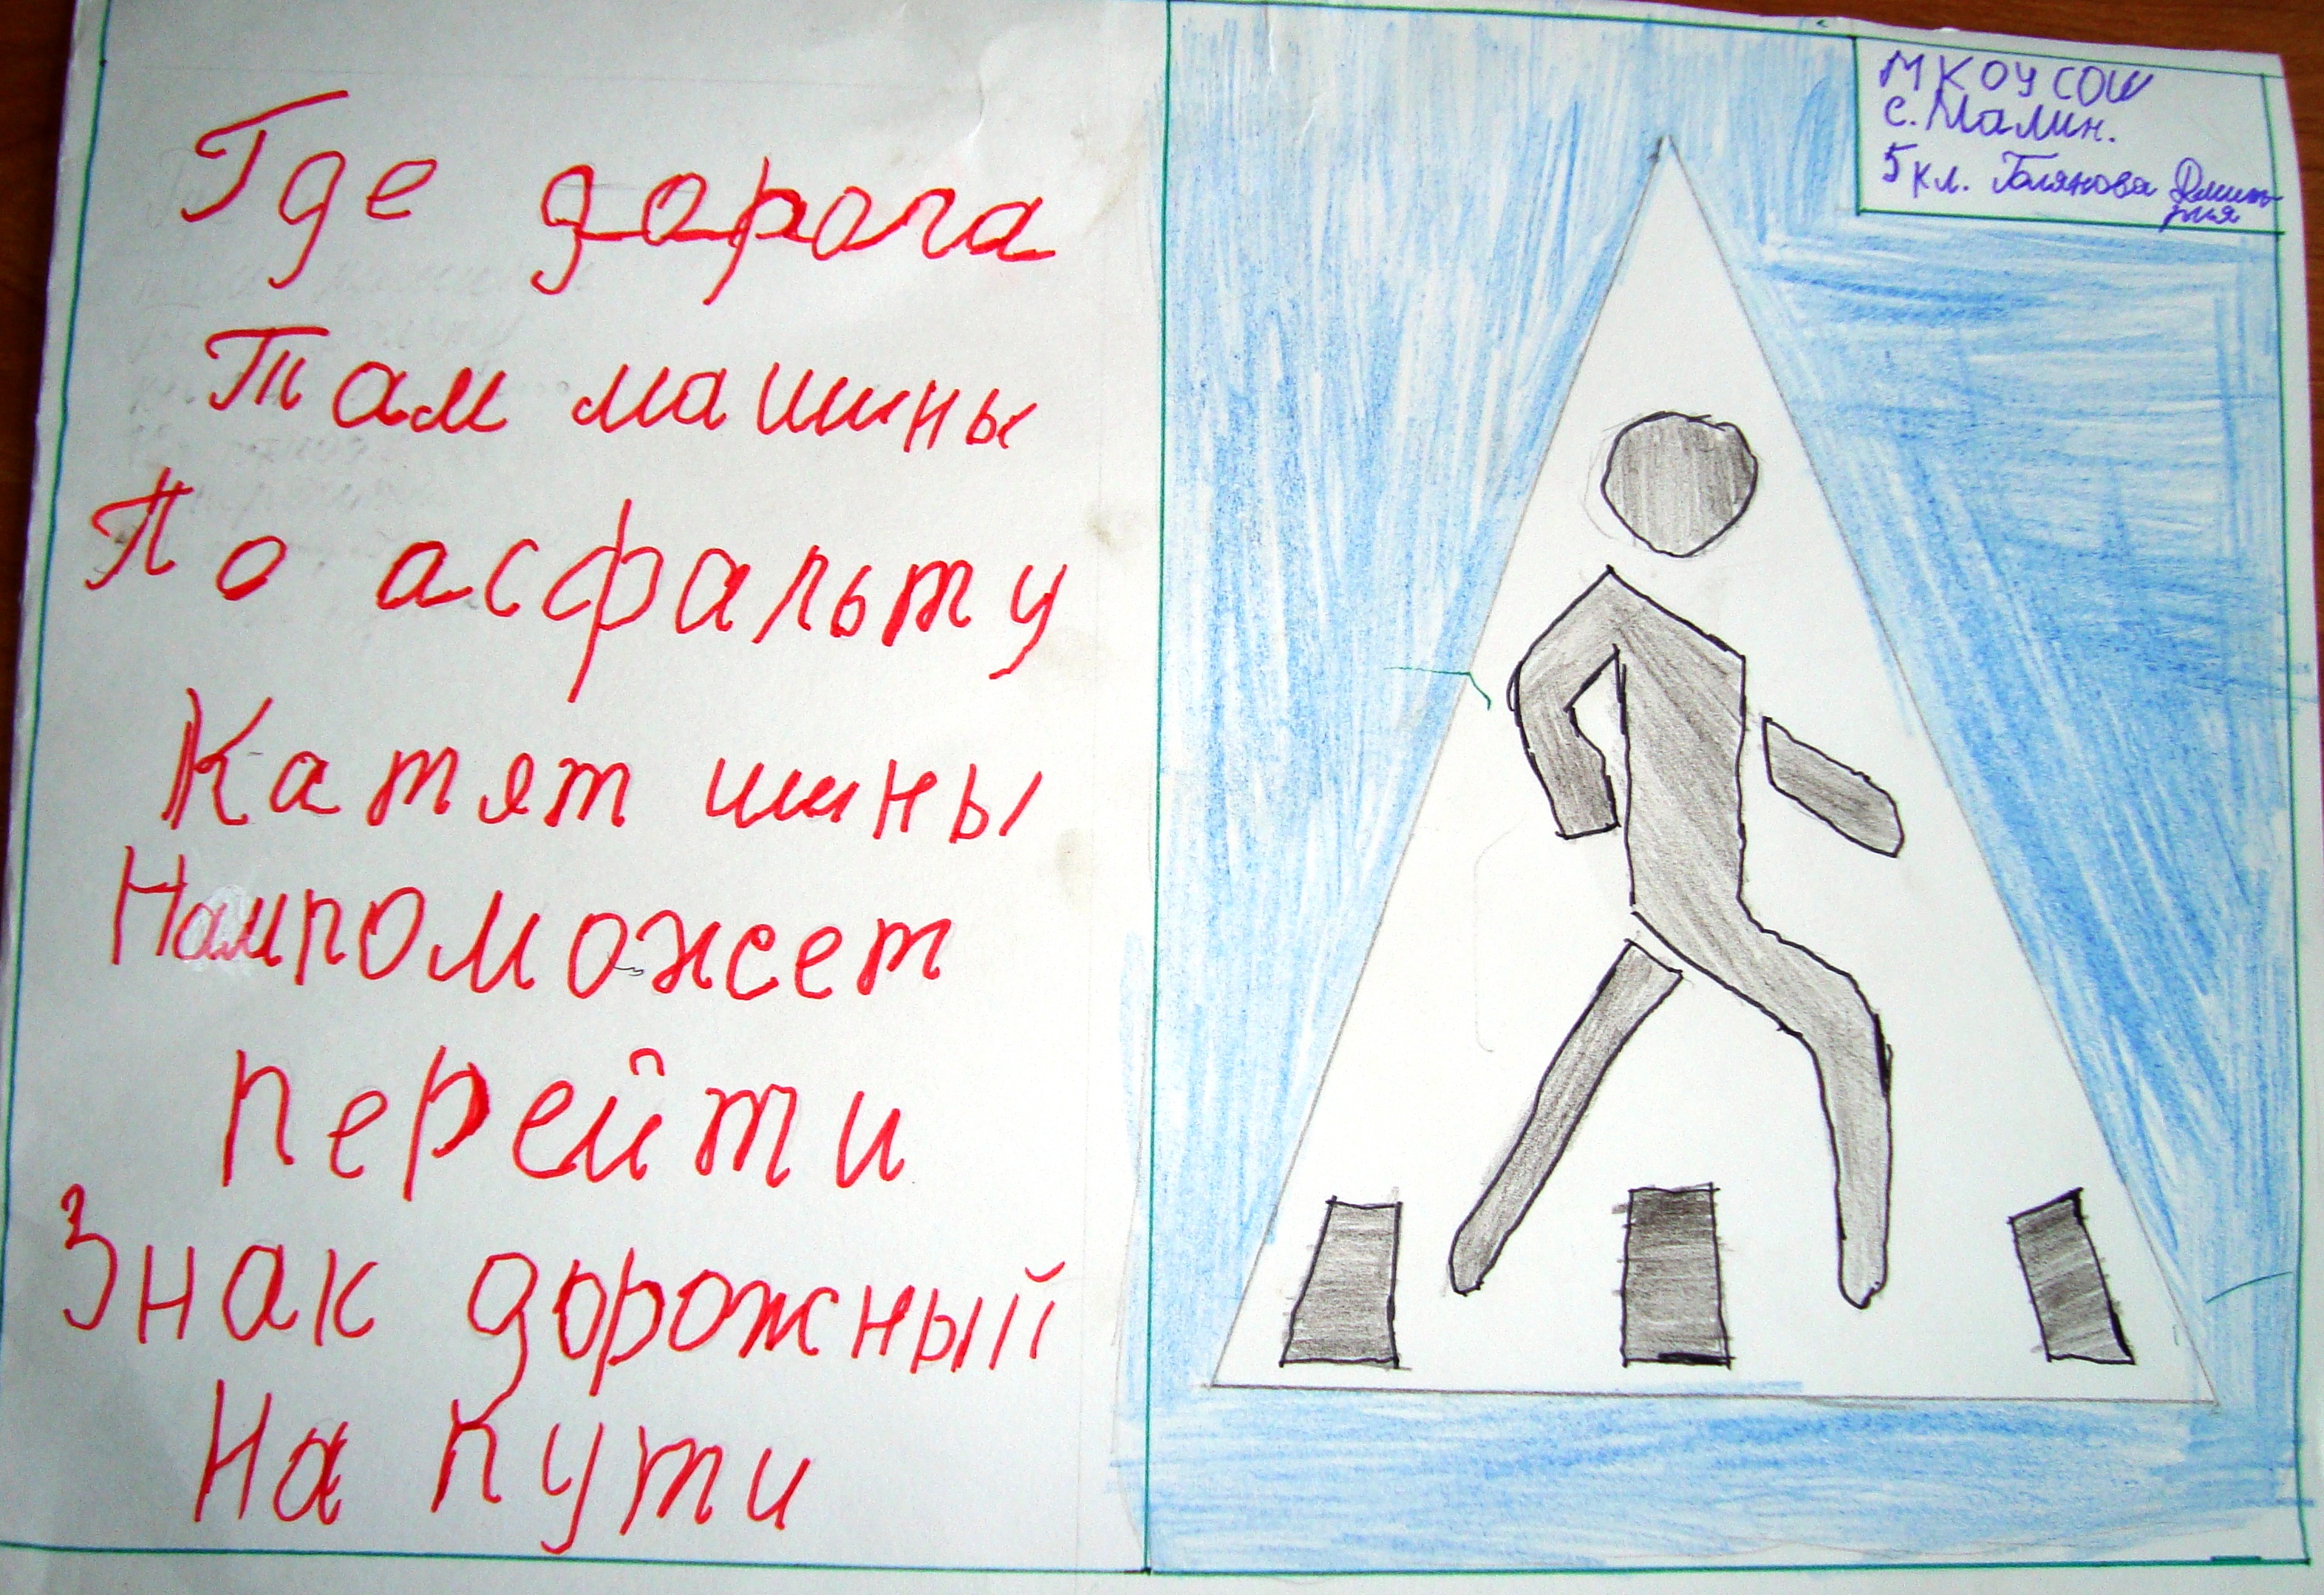 Где дорога
Там машины
По асфальту
Катят шины
Нам поможет
перейти
Знак дорожный
На пути
МКОУСОШ
с. Малин.
5 кл. Голякова Дмит-
рия